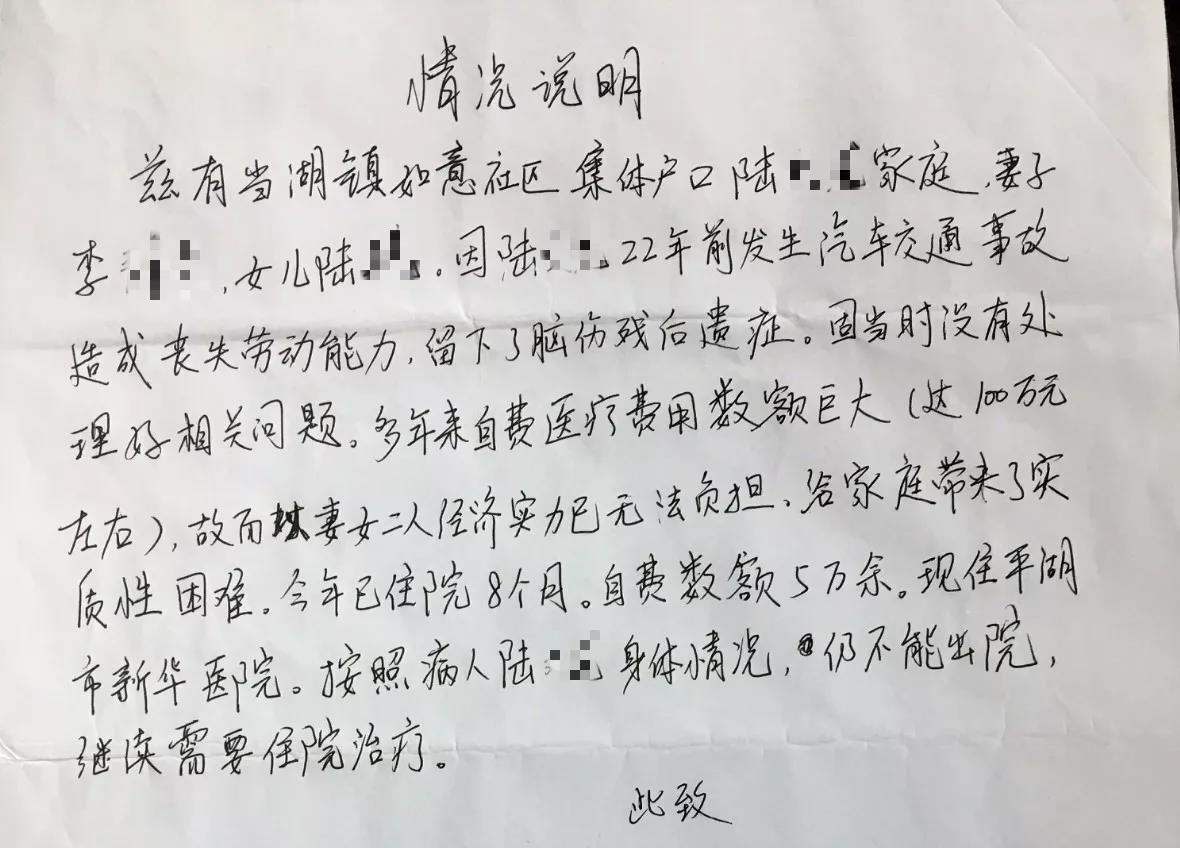 情况说明
兹有当湖镇如意社区集体户口陆家庭,妻子
李,女儿陆。因陆22年前发生汽车交通事故
造成丧失劳动能力,留下了脑伤残后遗症。因当时没有处
理好相关问题。多年来自费医疗费用数额巨大(达100万元
左右),故而妻女二人经济实力已无法负担、给家庭带来了实
质性困难。今年已住院8个月。自费数额5万余。现住平湖
市新华医院。按照病人陆身体情况,仍不能出院,
继续需要住院治疗。
此致